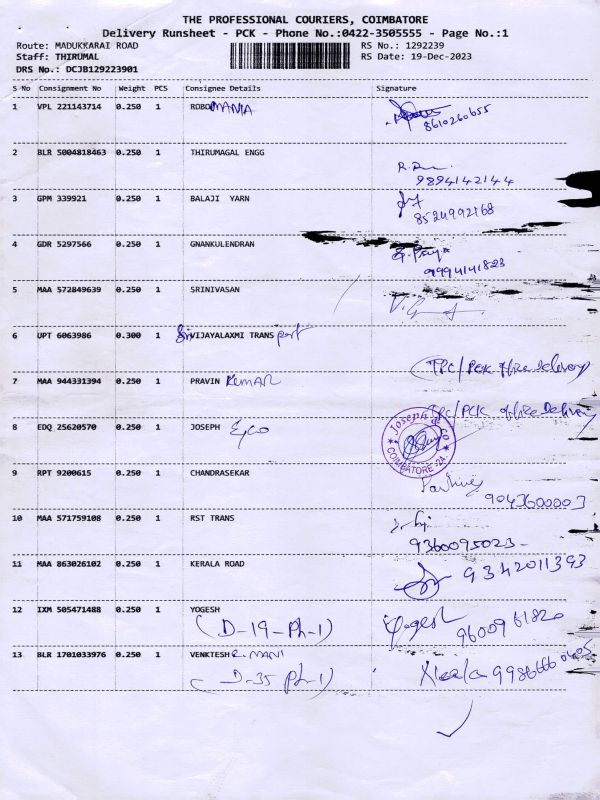 THE PROFESSIONAL COURIERS, COIMBATORE
Delivery Runsheet - PCK - Phone No.:0422-3505555 - Page No.:1
Route: MADUKKARAI ROAD RS No.: 1292239
Staff: THIRUMAL RS Date: 19-Dec-2023
DRS No.: DCJB129223901
S No Consignment No Weight PCS Consignee Details Signature
1 VPL 221143714 0.250 1 ROBOMANIA
8610260655
2 BLR 5004818463 0.250 1 THIRUMAGAL ENGG
9894142144
3 GPM 339921 0.250 1 BALAJI YARN
8524992168
4 GDR 5297566 0.250 1 GNANKULENDRAN
9994141823
5 MAA 572849639 0.250 1 SRINIVASAN
6 UPT 6063986 0.300 1 Sri VIJAYALAXMI TRANSport
TPC/PCK office Delivery
7 MAA 944331394 0.250 1 PRAVIN KUMAR
TPC/PCK office Delivery
8 EDQ 25620570 0.250 1 JOSEPH & co
Joseph & Co
COIMBATORE-24
9 RPT 9200615 0.250 1 CHANDRASEKAR
9043600003
10 MAA 571759108 0.250 1 RST TRANS
9360095023-
11 MAA 863026102 0.250 1 KERALA ROAD
9342011393
12 IXM 505471488 0.250 1 YOGESH Yogesh
(D-19-Ph-1) 9600961820
13 BLR 1701033976 0.250 1 VENKTESH R. MANI
(D-35 Ph-1)